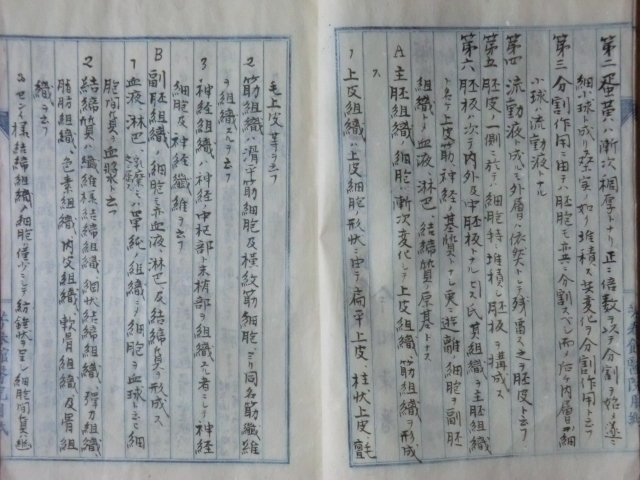 第二蛋黄ハ漸次稠厚トナリ正ニ倍数ヲ以テ分割ヲ始メ遂ニ
細小球ト成リ堆積ス其変化ヲ分割作用ト云フ
第三分割作用ニ由テハ胚胞モ亦共ニ分割スベシ而ノ后チ内層ノ細
小球ハ流動液トナル
第四流動液ト成モ外層ハ依然トシテ残留ス之ヲ胚皮ト云フ
第五胚皮ノ一側ニ於テ細胞特ニ堆積シ胚板ヲ構成ス
第六胚板ハ次テ内外及中胚板トナル氏其組織ヲ主胚組織
ト名ケ上皮筋、神経ノ基質トナシ更ニ遊離ノ細胞ヲ副胚
組織トシ血液、淋巴、結締質ノ原基トナス
A 主胚組織ノ細胞ハ漸次変化シテ上皮組織、筋組織ヲ形成
ス
1 上皮組織ハ細胞ノ形状ニ由テ扁平上皮、柱状上皮、氈
毛上皮等ヲ云フ
2 筋組織ハ滑平筋細胞及横紋筋細胞ニシテ同名筋繊維
ヲ組織スルヲ云フ
3 神経組織ハ神経中枢部ト末梢部ヲ組織スル者ニシテ神経
細胞及神経繊維ヲ云フ
B 副胚組織ノ細胞ハ亦血液淋巴及結締質ヲ形成ス
1 血液、淋巴、乳糜ハ単純ノ組織ニテ細胞ヲ血球ト云ヒ細
胞間質ヲ血漿ト云フ
2 結締質ハ繊維様結締組織、網状結締組織、弾力組織
脂肪組織、色素組織、内皮組織、軟骨組織及骨組
織ヲ云フ
a センイ様結締組織ハ細胞僅少ニシテ紡錘状ヲ呈シ細胞間質